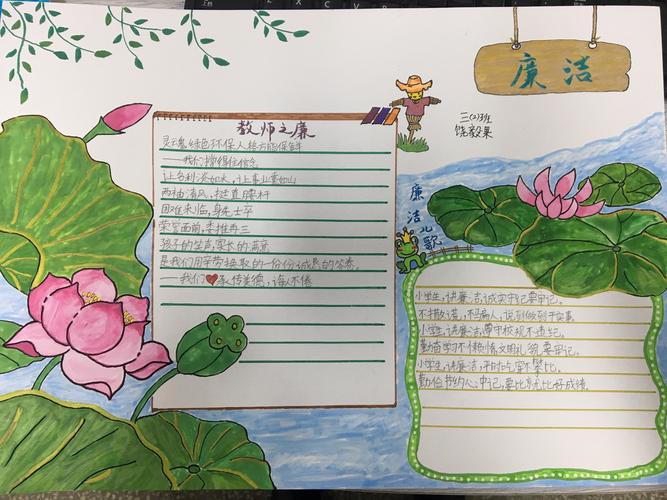 廉洁
三(2)班
饶毅果
教师之廉
灵魂绿色环保人格方能保鲜
——我们撑得住信念
让名利淡如水,让事业重如山
两袖清风,挺直腰杆
困难来临,身先士卒
荣誉面前,委推再三
孩子的笑声,家长的满意
是我们用辛劳换取的一份份诚恳的答卷。
——我们❤承传美德,诲人不倦
廉洁儿歌
小学生,讲廉洁,诚实书记要牢记。
不撒谎,不骗人,说到做到干实事
小学生,讲廉洁,遵守校规不违纪。
勤奋学习不懒惰,文明礼貌要牢记。
小学生,讲廉洁,平时吃穿不攀比。
勤俭节约心中记,要比就比好成绩。